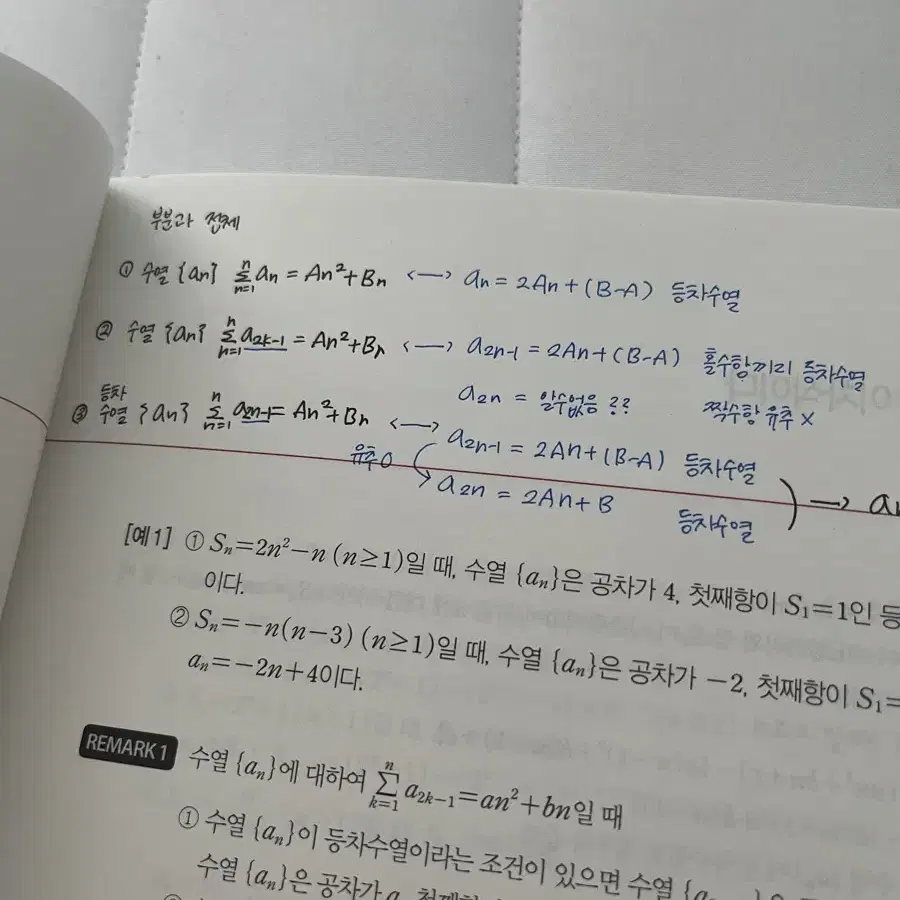 부분과 전체
① 수열 {an} n Σ n=1 an = An²+Bn <—> an = 2An+(B-A) 등차수열
② 수열 {an} n Σ n=1 a2k-1 = An²+Bn <—> a2n-1 = 2An+(B-A) 홀수항끼리 등차수열
a2n = 알수없음 ?? 짝수항 유추 X
③ 등차수열 {an} n Σ n=1 a2n-1 = An²+Bn <—> a2n-1 = 2An+(B-A) 등차수열
유추 O a2n = 2An+B 등차수열 → an
[예1] ① Sn=2n²-n (n≥1)일 때, 수열 {an}은 공차가 4, 첫째항이 S1=1인 등
이다.
② Sn=-n(n-3) (n≥1)일 때, 수열 {an}은 공차가 -2, 첫째항이 S1=
an=-2n+4이다.
REMARK 1 수열 {an}에 대하여 n Σ k=1 a2k-1=an²+bn일 때
① 수열 {an}이 등차수열이라는 조건이 있으면 수열 {a
수열 {an}은 공차가 a, 첫째항